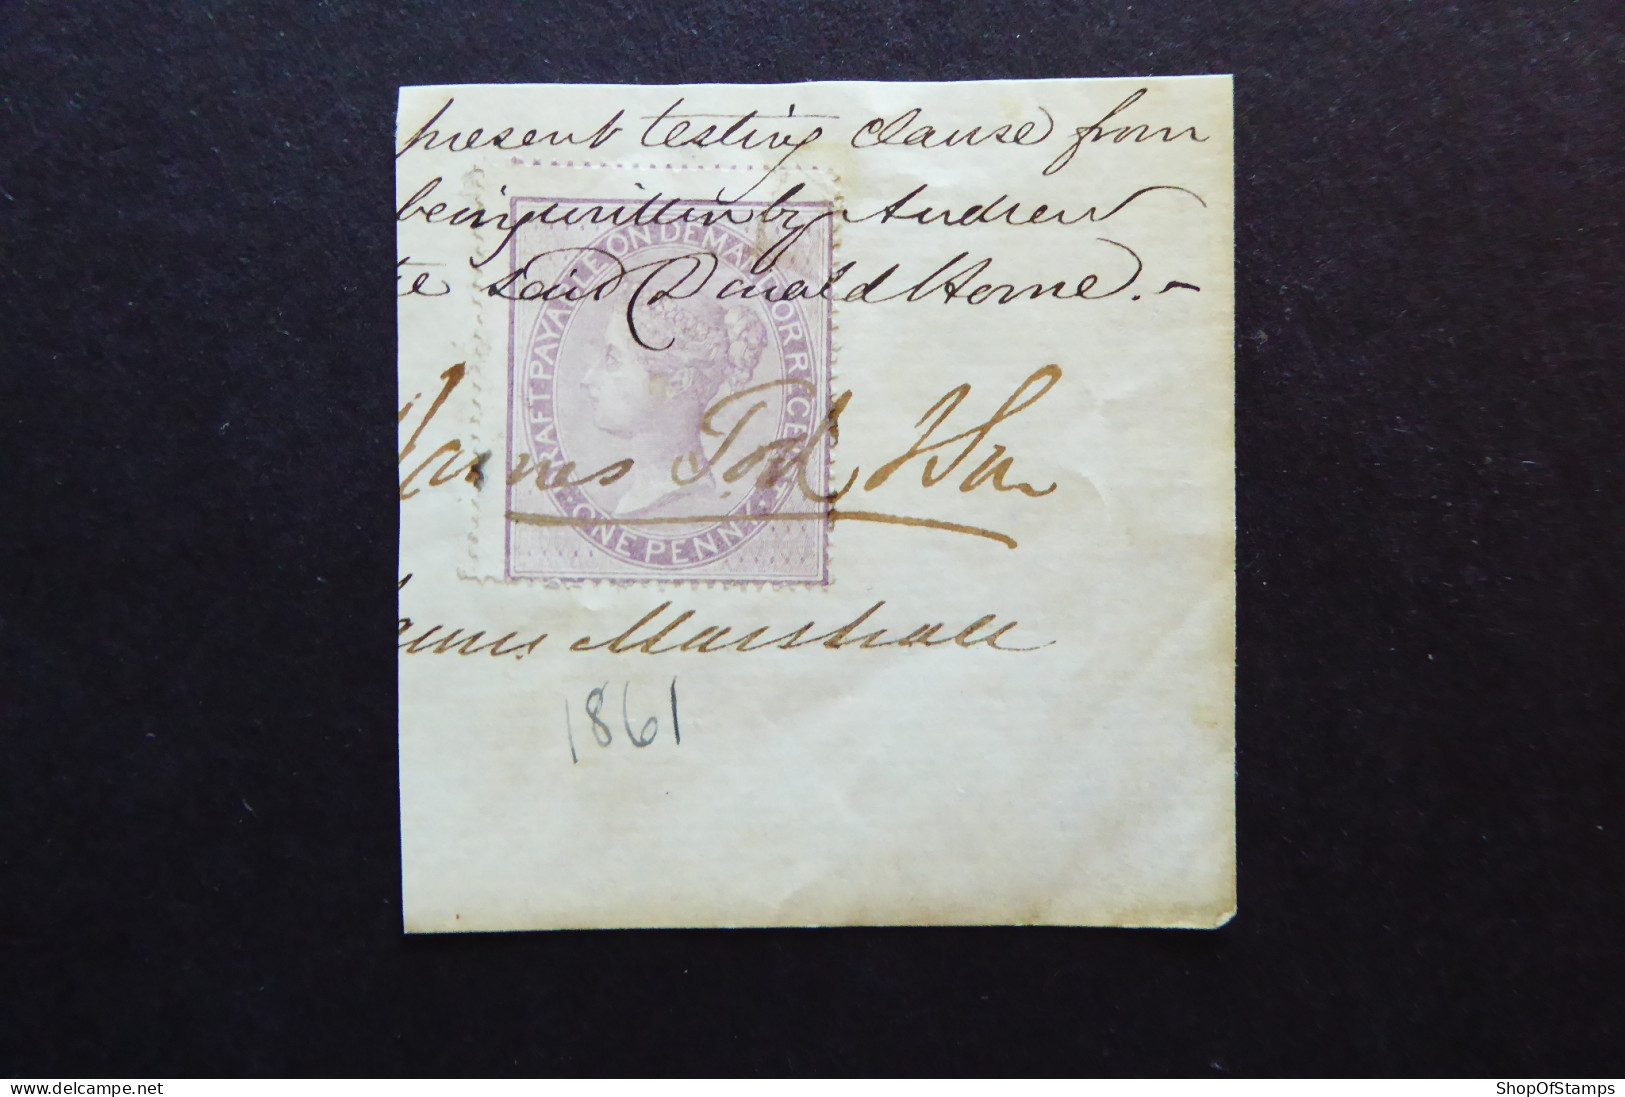 present testing clause from
being written by Andrew
te said Donald Horne. -
DRAFT PAYABLE ON DEMAND OR RECEIPT
James Tod
· ONE PENNY ·
James Marshall
1861
www.delcampe.net
ShopOfStamps